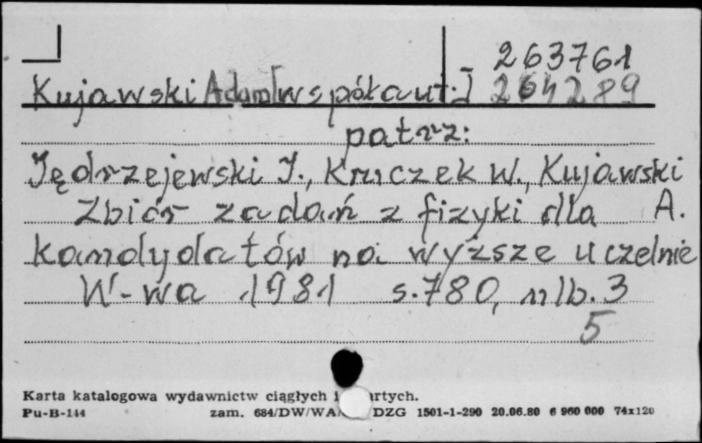 263761
Kujawski Adam [współaut.] 264289
patrz:
Jędrzejewski J., Kruczek W., Kujawski
Zbiór zadań z fizyki dla A.
kandydatów na wyższe uczelnie
W-wa 1981 s.780, nlb. 3
5
Karta katalogowa wydawnictw ciągłych i artych.
Pu-B-144 zam. 684/DW/WA/ DZG 1501-1-290 20.06.80 6 960 000 74x120